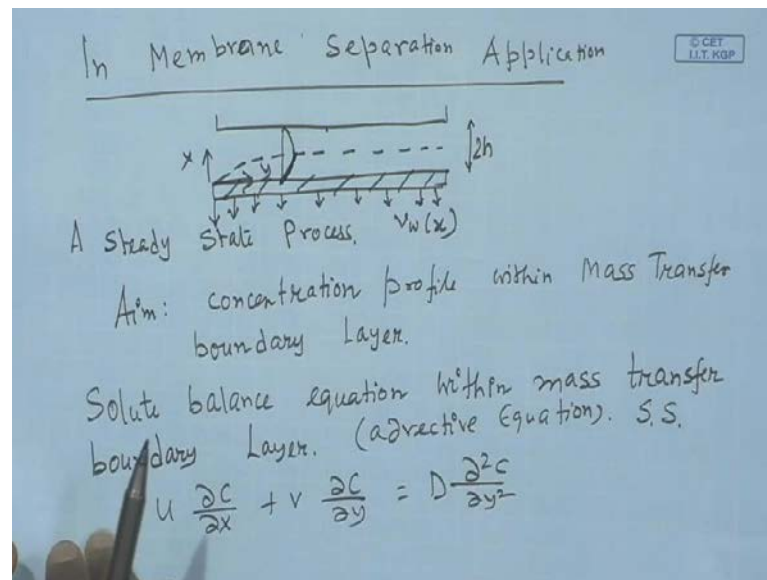 In Membrane Separation Application
© CET
I.I.T. KGP
x
y
2h
A Steady State Process. Vw(x)
Aim: concentration profile within Mass Transfer
boundary Layer.
Solute balance equation within mass transfer
boundary Layer. (advective Equation). S.S.
u ∂c/∂x + v ∂c/∂y = D ∂²c/∂y²